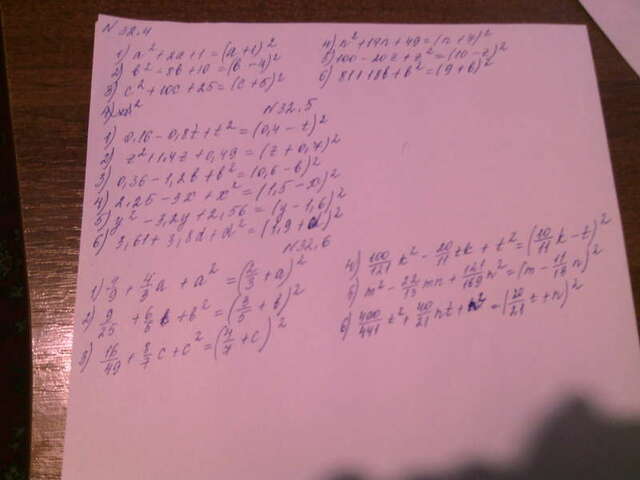 N 32.4
1) a² + 2a + 1 = (a + 1)²
2) b² - 8b + 10 = (b - 4)²
3) c² + 10c + 25 = (c + 5)²
4) n² + 14n + 49 = (n + 7)²
5) 100 - 20z + z² = (10 - z)²
6) 81 + 18b + b² = (9 + b)²
N 32.5
1) 0,16 - 0,8t + t² = (0,4 - t)²
2) z² + 1,4z + 0,49 = (z + 0,7)²
3) 0,36 - 1,2b + b² = (0,6 - b)²
4) 2,25 - 3x + x² = (1,5 - x)²
5) y² - 3,2y + 2,56 = (y - 1,6)²
6) 3,61 + 3,8d + d² = (1,9 + d)²
N 32.6
1) 4/9 + 4/3 a + a² = (2/3 + a)²
2) 9/25 + 6/5 b + b² = (3/5 + b)²
3) 16/49 + 8/7 c + c² = (4/7 + c)²
4) 100/121 k² - 20/11 tk + t² = (10/11 k - t)²
5) m² - 22/13 mn + 121/169 n² = (m - 11/13 n)²
6) 400/441 t² + 40/21 nt + n² = (20/21 t + n)²